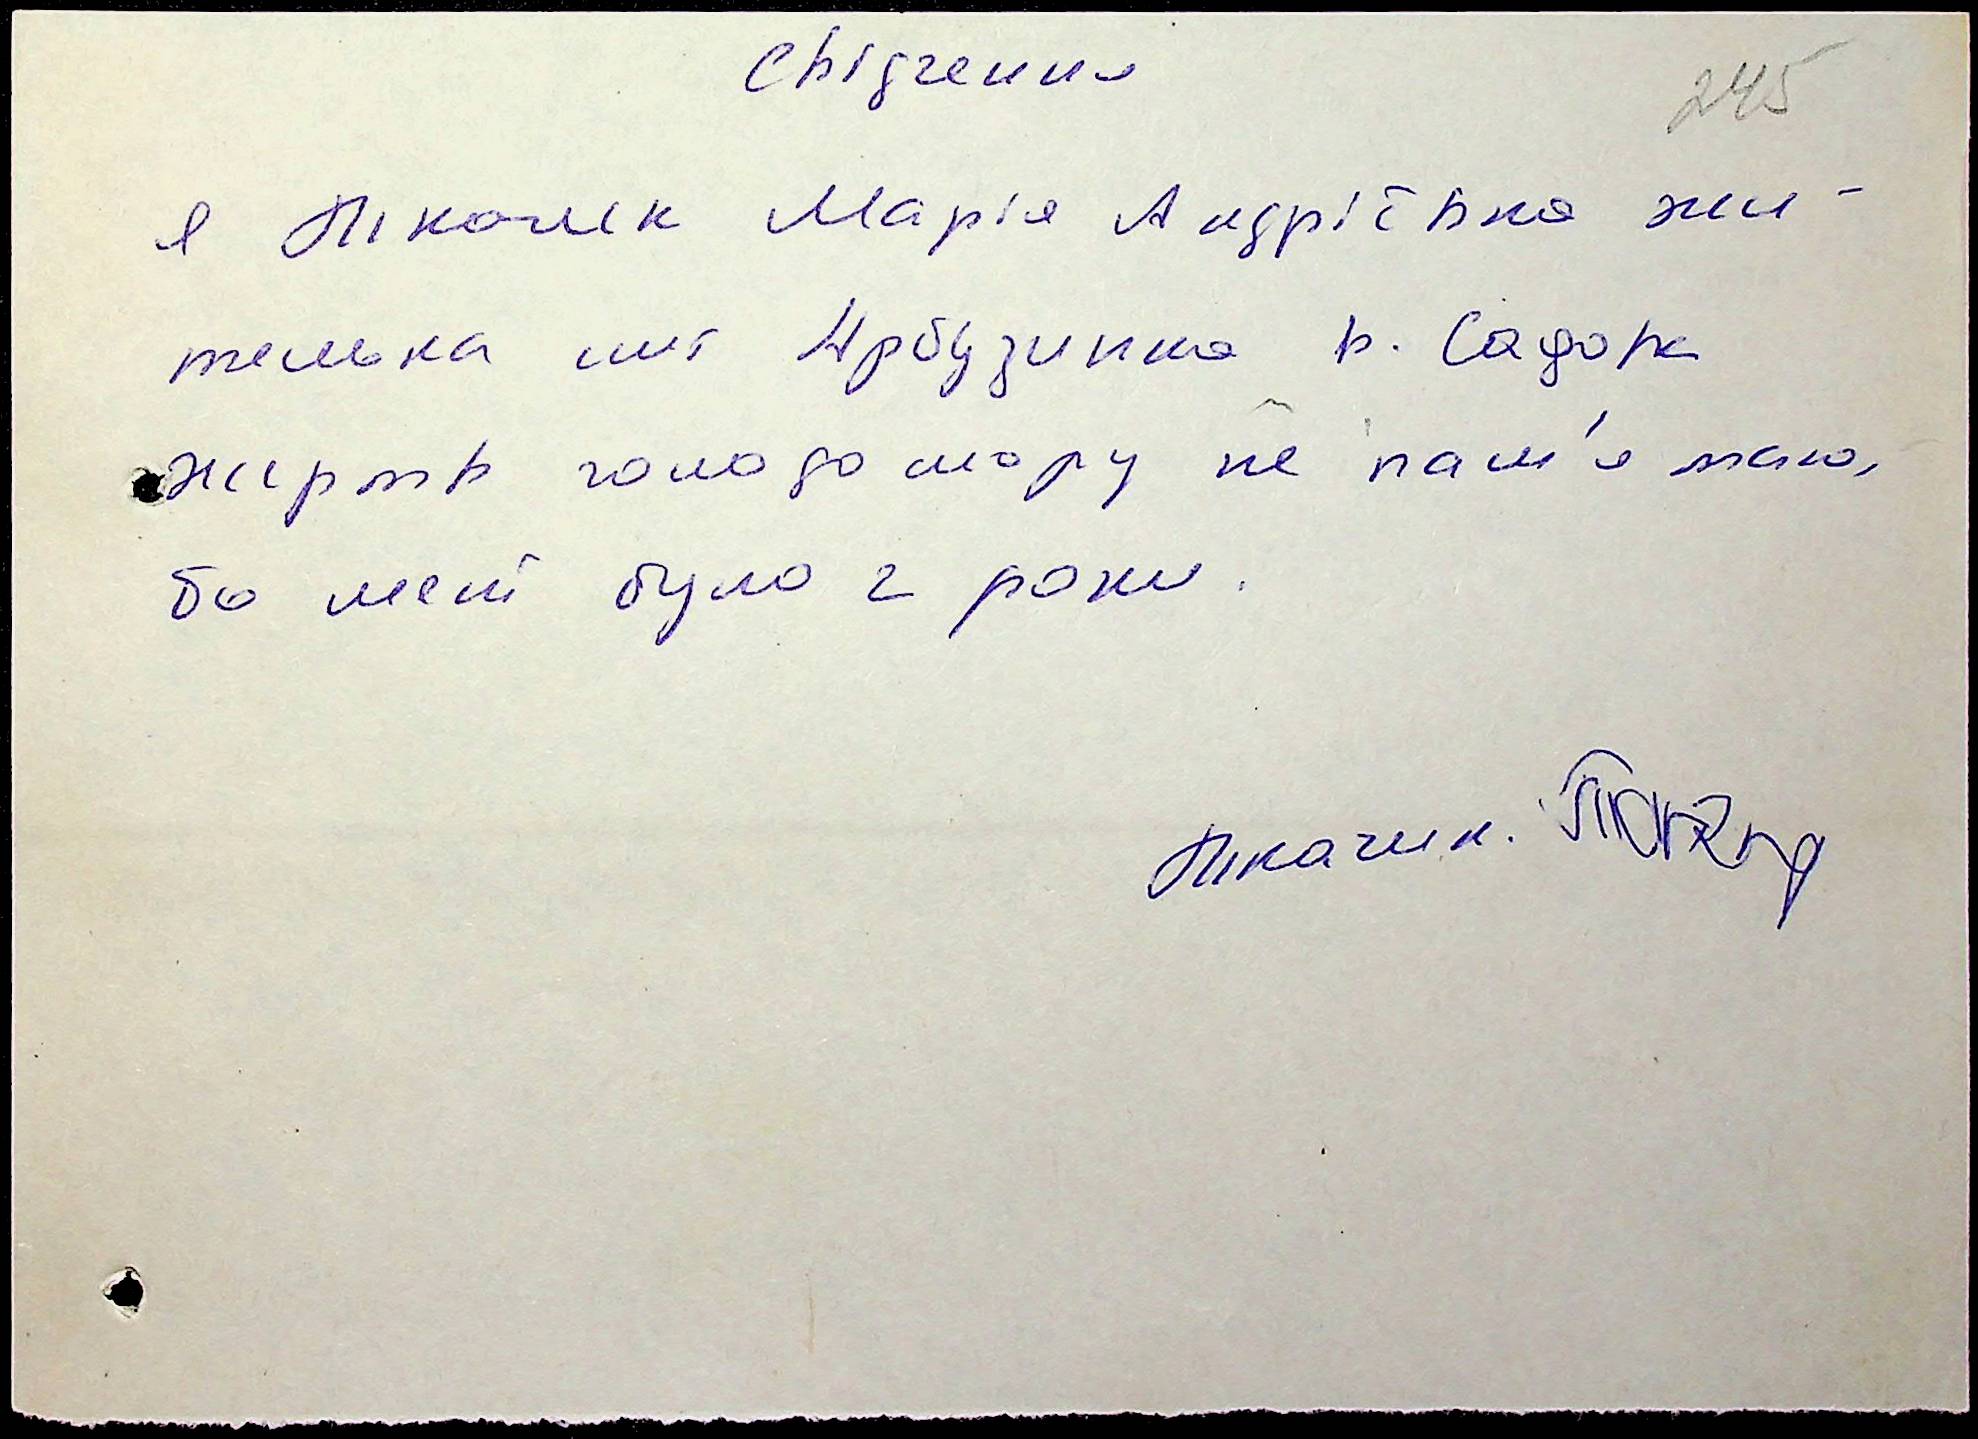 Свідчення
245
Я Ткачик Марія Андріївна жи-
телька смт Арбузинка в. Садова
жертв голодомору не пам'ятаю,
бо мені було 2 роки.
Ткачик.